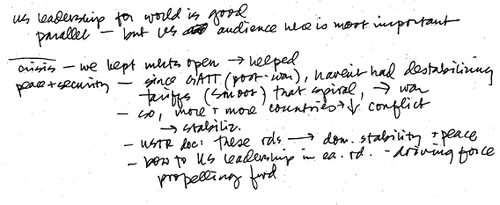 US leadership for world is good
parallel — but US audience here is most important
crisis — we kept mkts open → helped
peace + security — since GATT (post-war), haven't had destabilizing
tariffs (Smoot) that spiral, → war
— so, more + more countries → ↓ conflict
→ stabiliz.
— USTR doc: these rds → dom. stability + peace
— how to US leadership in ea. rd. - driving force
propelling fwd